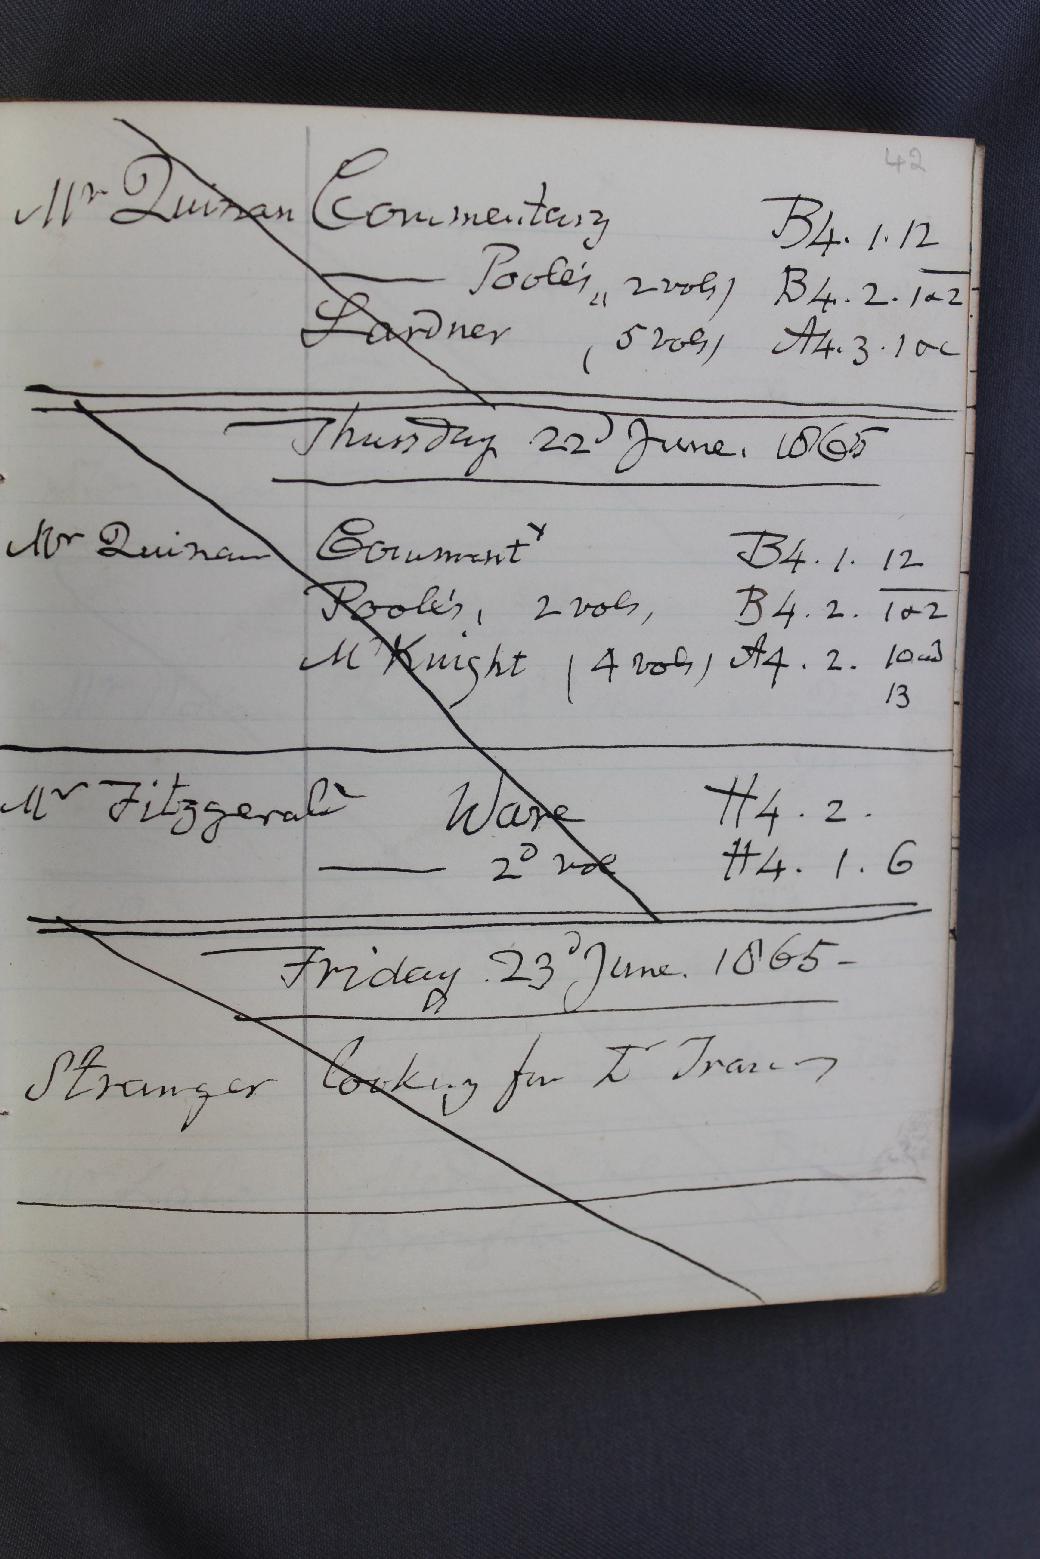 42
Mr Quinan Commentary B4.1.12
—— Poole's, 2 vols) B4.2.1&2
Lardner (5 vols) A4.3.1&c
Thursday 22d June. 1865
Mr Quinan Comment^y B4.1.12
Poole's, 2 vols, B4.2.1&2
McKnight (4 vols) A4.2.10 and
13
Mr Fitzgerald Ware H4.2.
—— 2d vol H4.1.6
Friday 23d June. 1865-
Stranger looking for